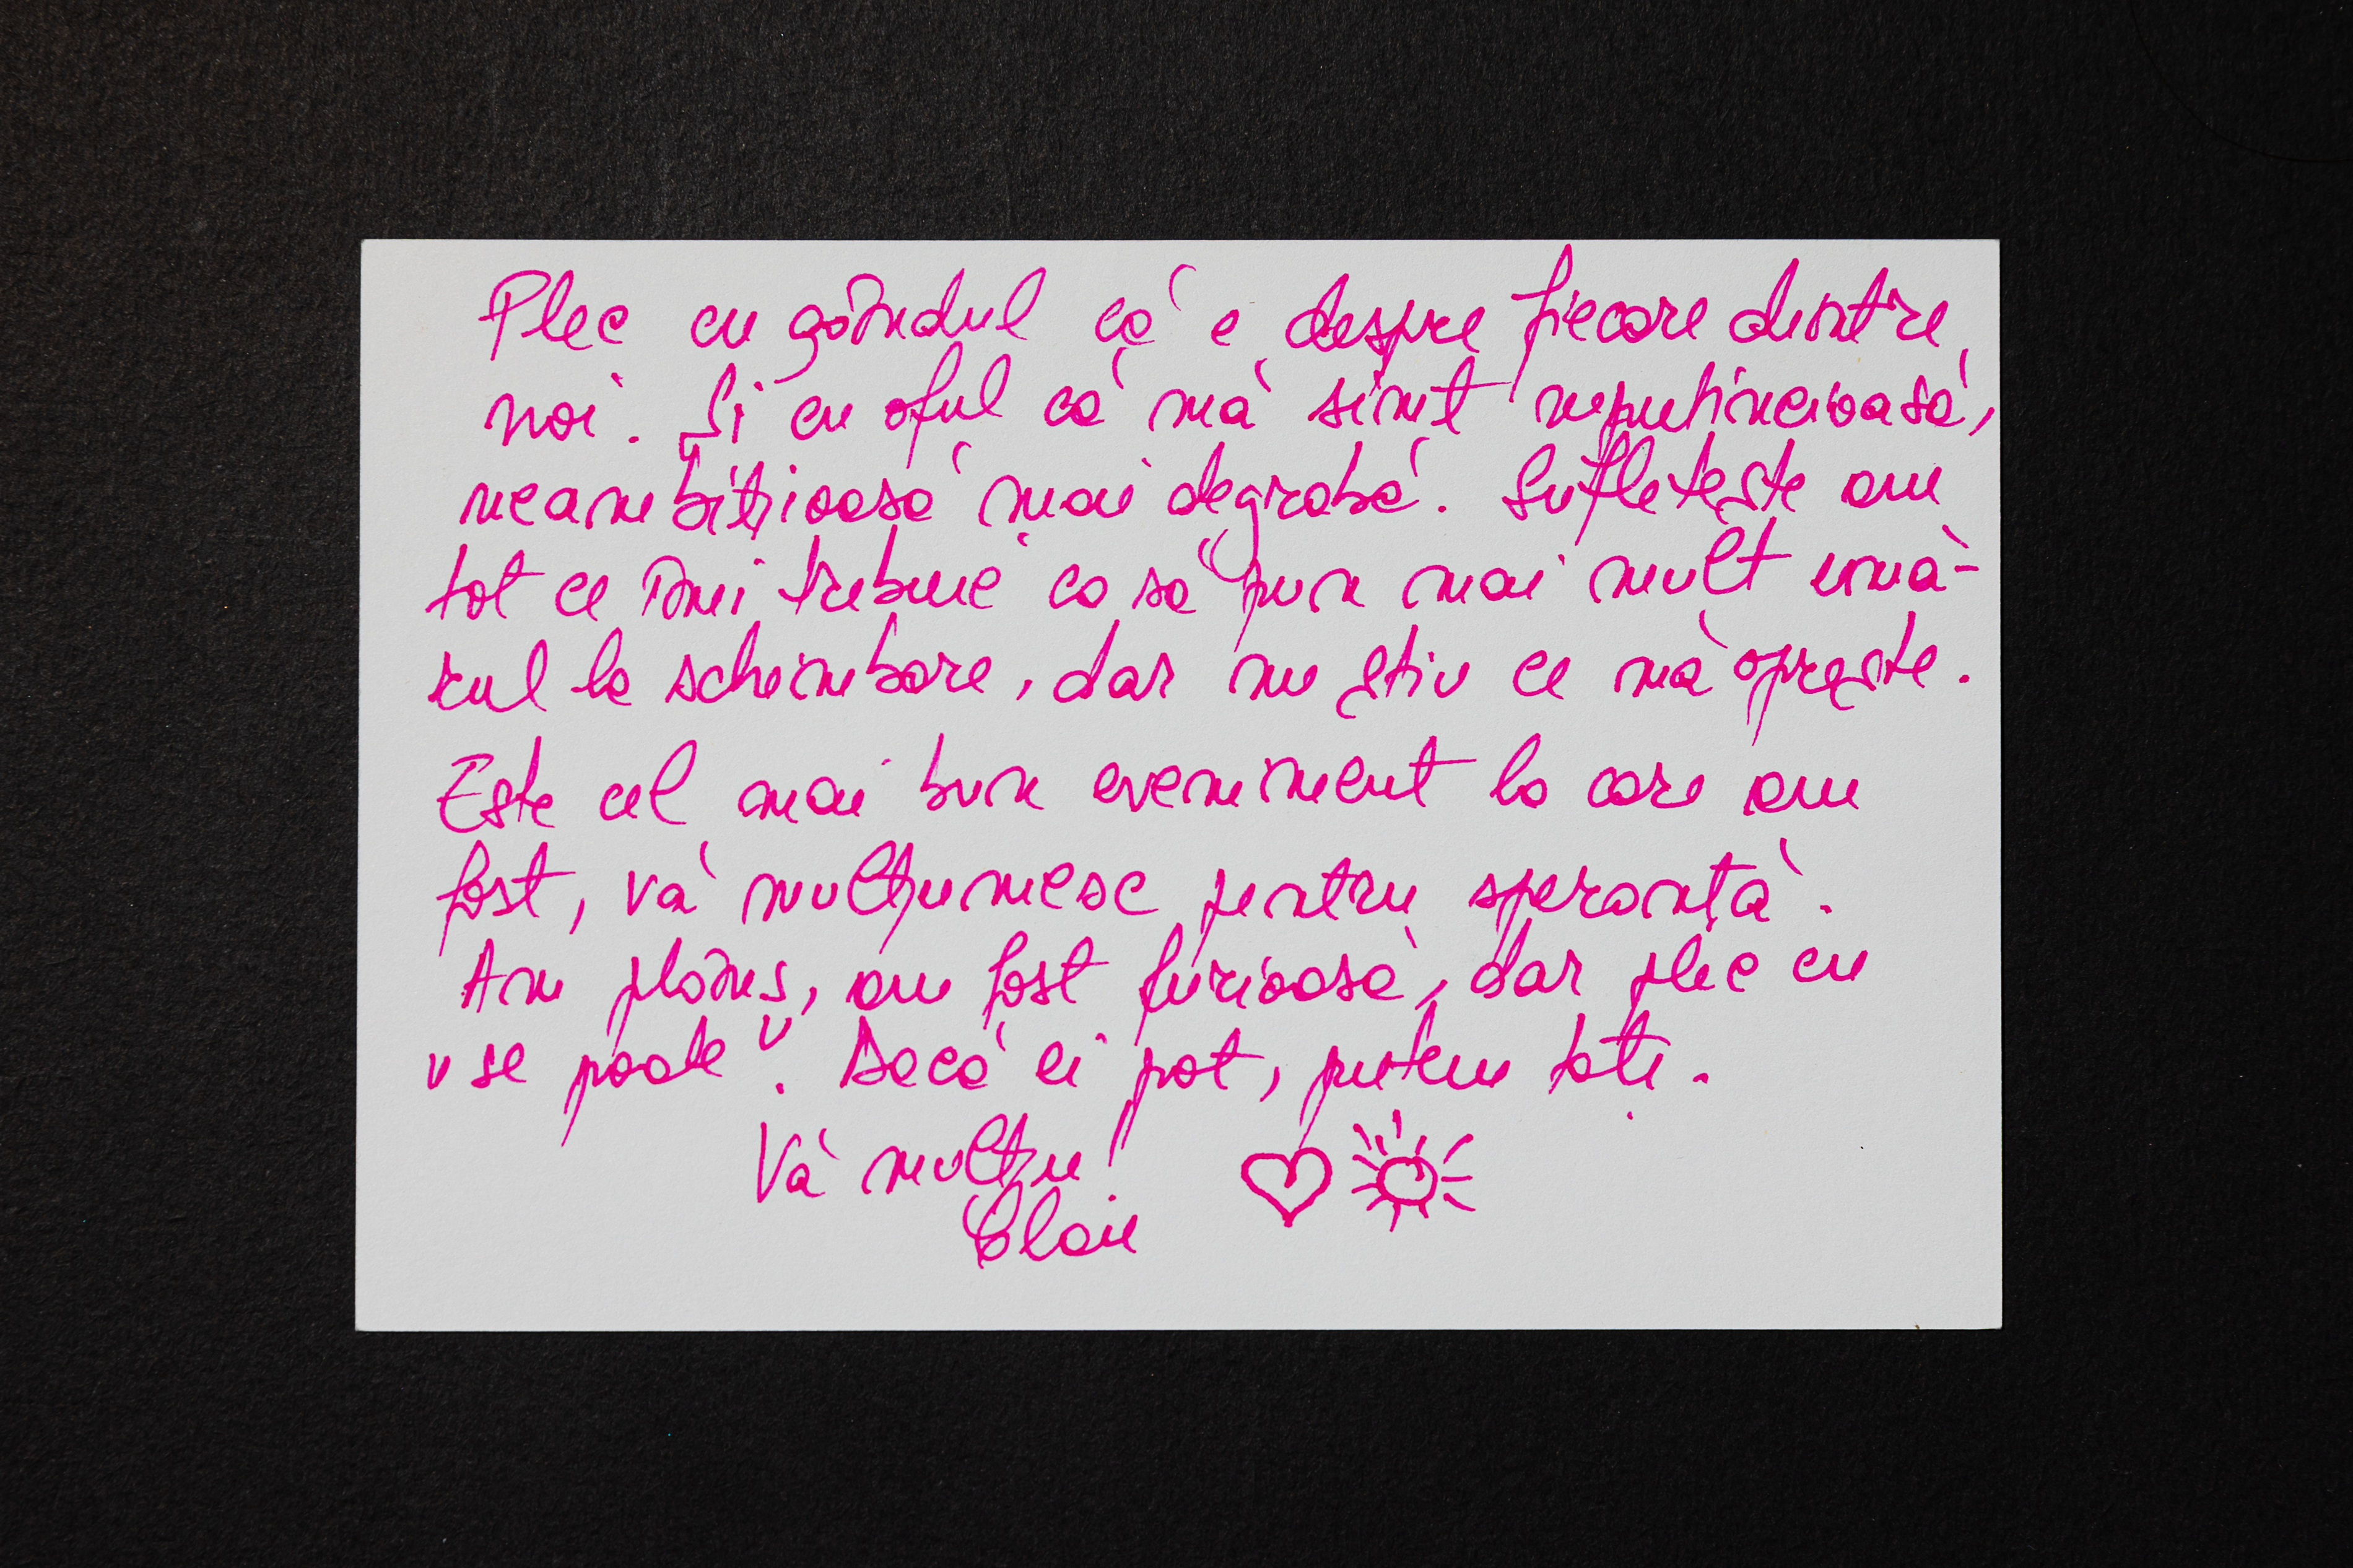 Plec cu gândul că e despre fiecare dintre
noi. Și cu oful că mă simt neputincioasă,
neambițioasă mai degrabă. Sufletește am
tot ce îmi trebuie ca să pun mai mult umă-
rul la schimbare, dar nu știu ce mă oprește.
Este cel mai bun eveniment la care am
fost, vă mulțumesc pentru speranță.
Am plâns, am fost furioasă, dar plec cu
"se poate". Dacă ei pot, putem toți.
Vă mulțu!